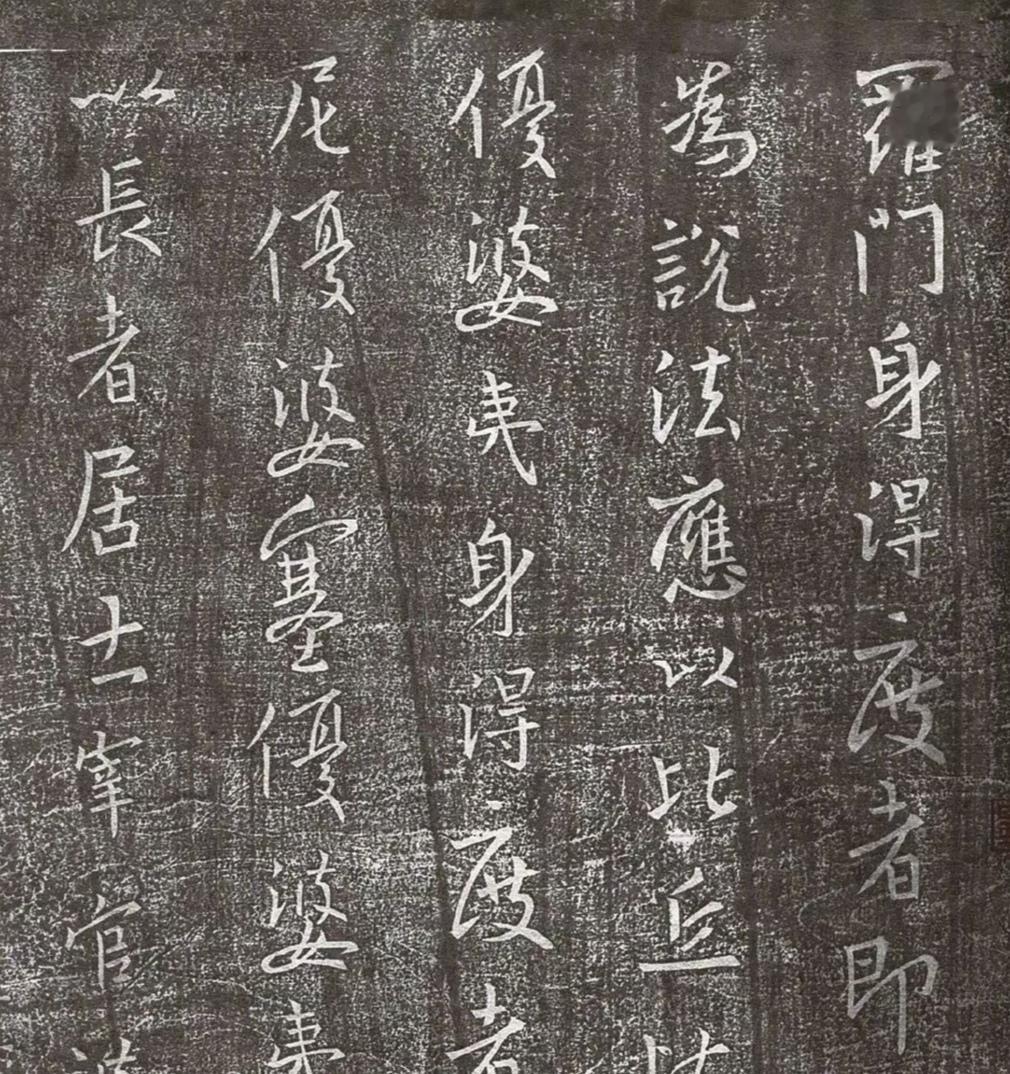 羅門身得度者即
為說法應以比丘比
優婆夷身得度者
尼優婆塞優婆夷
以長者居士宰官